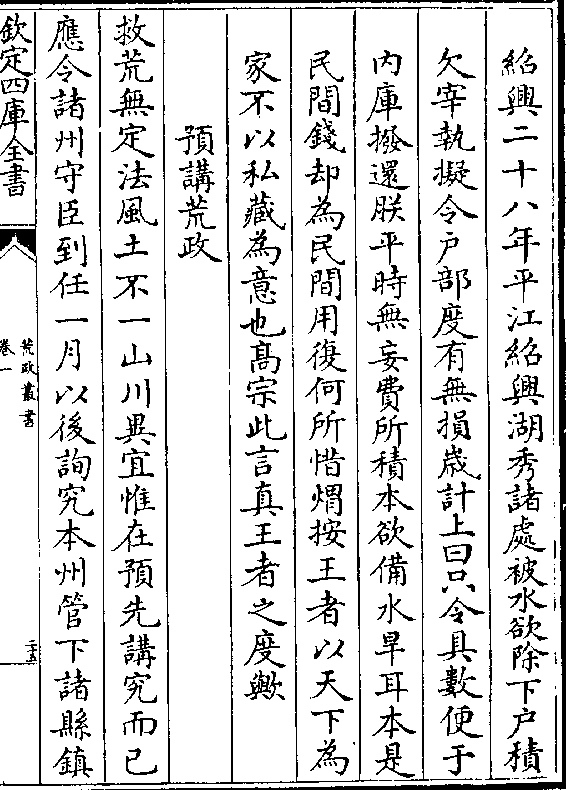 紹興二十八年平江紹興湖秀諸處被水欲除下户積
欠宰執擬令户部度有無損歳計上曰只令具數便于
内庫撥還朕平時無妄費所積本欲備水旱耳本是
民間錢却為民間用復何所惜煟按王者以天下為
家不以私藏為意也髙宗此言真王者之度歟
預講荒政
救荒無定法風土不一山川異宜惟在預先講究而已
應令諸州守臣到任一月以後詢究本州管下諸縣鎮
欽定四庫全書
荒政叢書
卷一
二十五